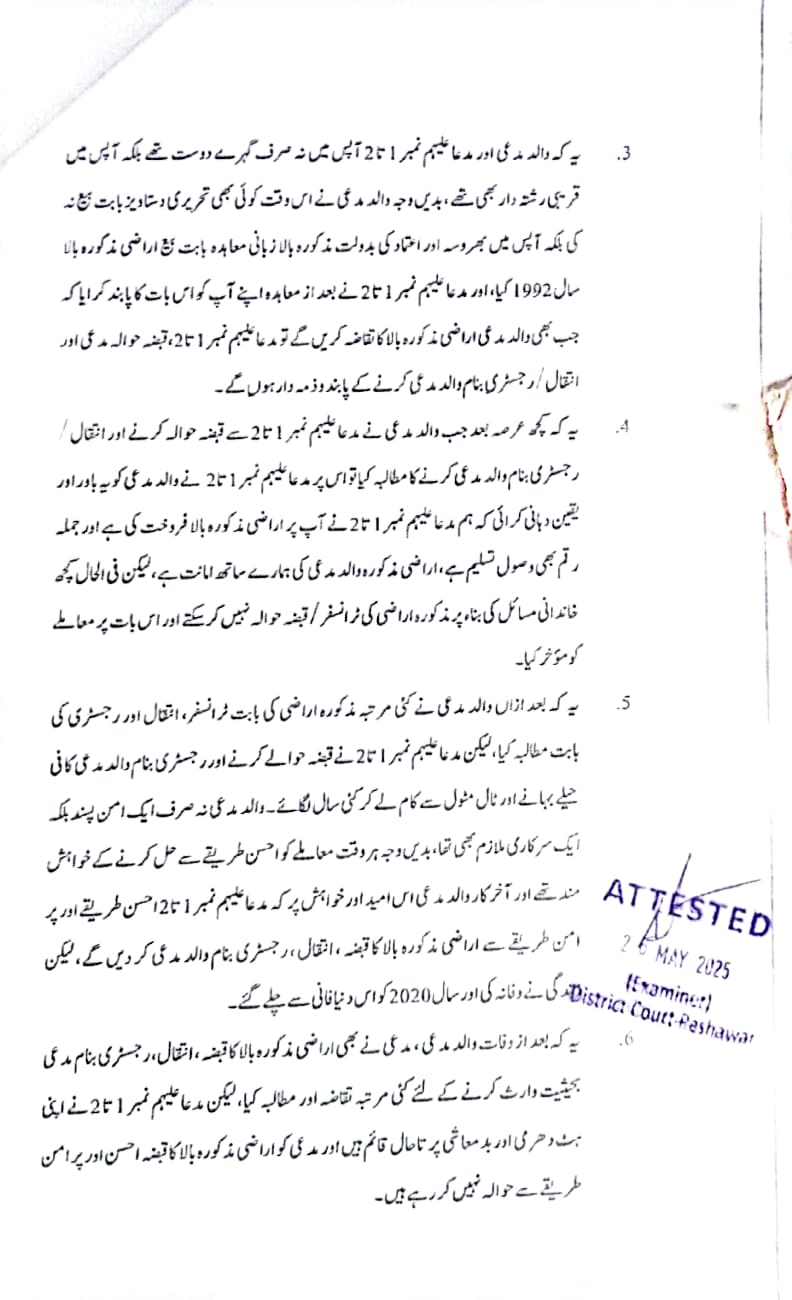 3. یہ کہ والد مدعی اور مدعا علیہم نمبر 1 تا 2 آپس میں نہ صرف گہرے دوست تھے بلکہ آپس میں
قریبی رشتہ دار بھی تھے، بدیں وجہ والد مدعی نے اس وقت کوئی بھی تحریری دستاویز بابت بیع نہ
کی بلکہ آپس میں بھروسہ اور اعتماد کی بدولت مذکورہ بالا زبانی معاہدہ بابت بیع اراضی مذکورہ بالا
سال 1992 کیا، اور مدعا علیہم نمبر 1 تا 2 نے بعد از معاہدہ اپنے آپ کو اس بات کا پابند کرایا کہ
جب بھی والد مدعی اراضی مذکورہ بالا کا تقاضہ کریں گے تو مدعا علیہم نمبر 1 تا 2، قبضہ حوالہ مدعی اور
انتقال/رجسٹری بنام والد مدعی کرنے کے پابند و ذمہ دار ہوں گے۔
4. یہ کہ کچھ عرصہ بعد جب والد مدعی نے مدعا علیہم نمبر 1 تا 2 سے قبضہ حوالہ کرنے اور انتقال/
رجسٹری بنام والد مدعی کرنے کا مطالبہ کیا تو اس پر مدعا علیہم نمبر 1 تا 2 نے والد مدعی کو یہ باور اور
یقین دہانی کرائی کہ ہم مدعا علیہم نمبر 1 تا 2 نے آپ پر اراضی مذکورہ بالا فروخت کی ہے اور جملہ
رقم بھی وصول تسلیم ہے، اراضی مذکورہ والد مدعی کی ہمارے ساتھ امانت ہے، لیکن فی الحال کچھ
خاندانی مسائل کی بناء پر مذکورہ اراضی کی ٹرانسفر/قبضہ حوالہ نہیں کر سکتے اور اس بات پر معاملے
کو مؤخر کیا۔
5. یہ کہ بعد ازاں والد مدعی نے کئی مرتبہ مذکورہ اراضی کی بابت ٹرانسفر، انتقال اور رجسٹری کی
بابت مطالبہ کیا، لیکن مدعا علیہم نمبر 1 تا 2 نے قبضہ حوالے کرنے اور رجسٹری بنام والد مدعی کافی
حیلے بہانے اور ٹال مٹول سے کام لے کر کئی سال لگائے۔ والد مدعی نہ صرف ایک امن پسند بلکہ
ایک سرکاری ملازم بھی تھا، بدیں وجہ ہر وقت معاملے کو احسن طریقے سے حل کرنے کے خواہش
مند تھے اور آخر کار والد مدعی اس امید اور خواہش پر کہ مدعا علیہم نمبر 1 تا 2 احسن طریقے اور پر
امن طریقے سے اراضی مذکورہ بالا کا قبضہ، انتقال، رجسٹری بنام والد مدعی کر دیں گے، لیکن
زندگی نے وفا نہ کی اور سال 2020 کو اس دنیا فانی سے چلے گئے۔
6. یہ کہ بعد از وفات والد مدعی، مدعی نے بھی اراضی مذکورہ بالا کا قبضہ، انتقال، رجسٹری بنام مدعی
بحیثیت وارث کرنے کے لئے کئی مرتبہ تقاضہ اور مطالبہ کیا، لیکن مدعا علیہم نمبر 1 تا 2 نے اپنی
ہٹ دھرمی اور بدمعاشی پر تاحال قائم ہیں اور مدعی کو اراضی مذکورہ بالا کا قبضہ احسن اور پر امن
طریقے سے حوالہ نہیں کر رہے ہیں۔
ATTESTED
26 MAY 2025
(Examiner)
District Court Peshawar